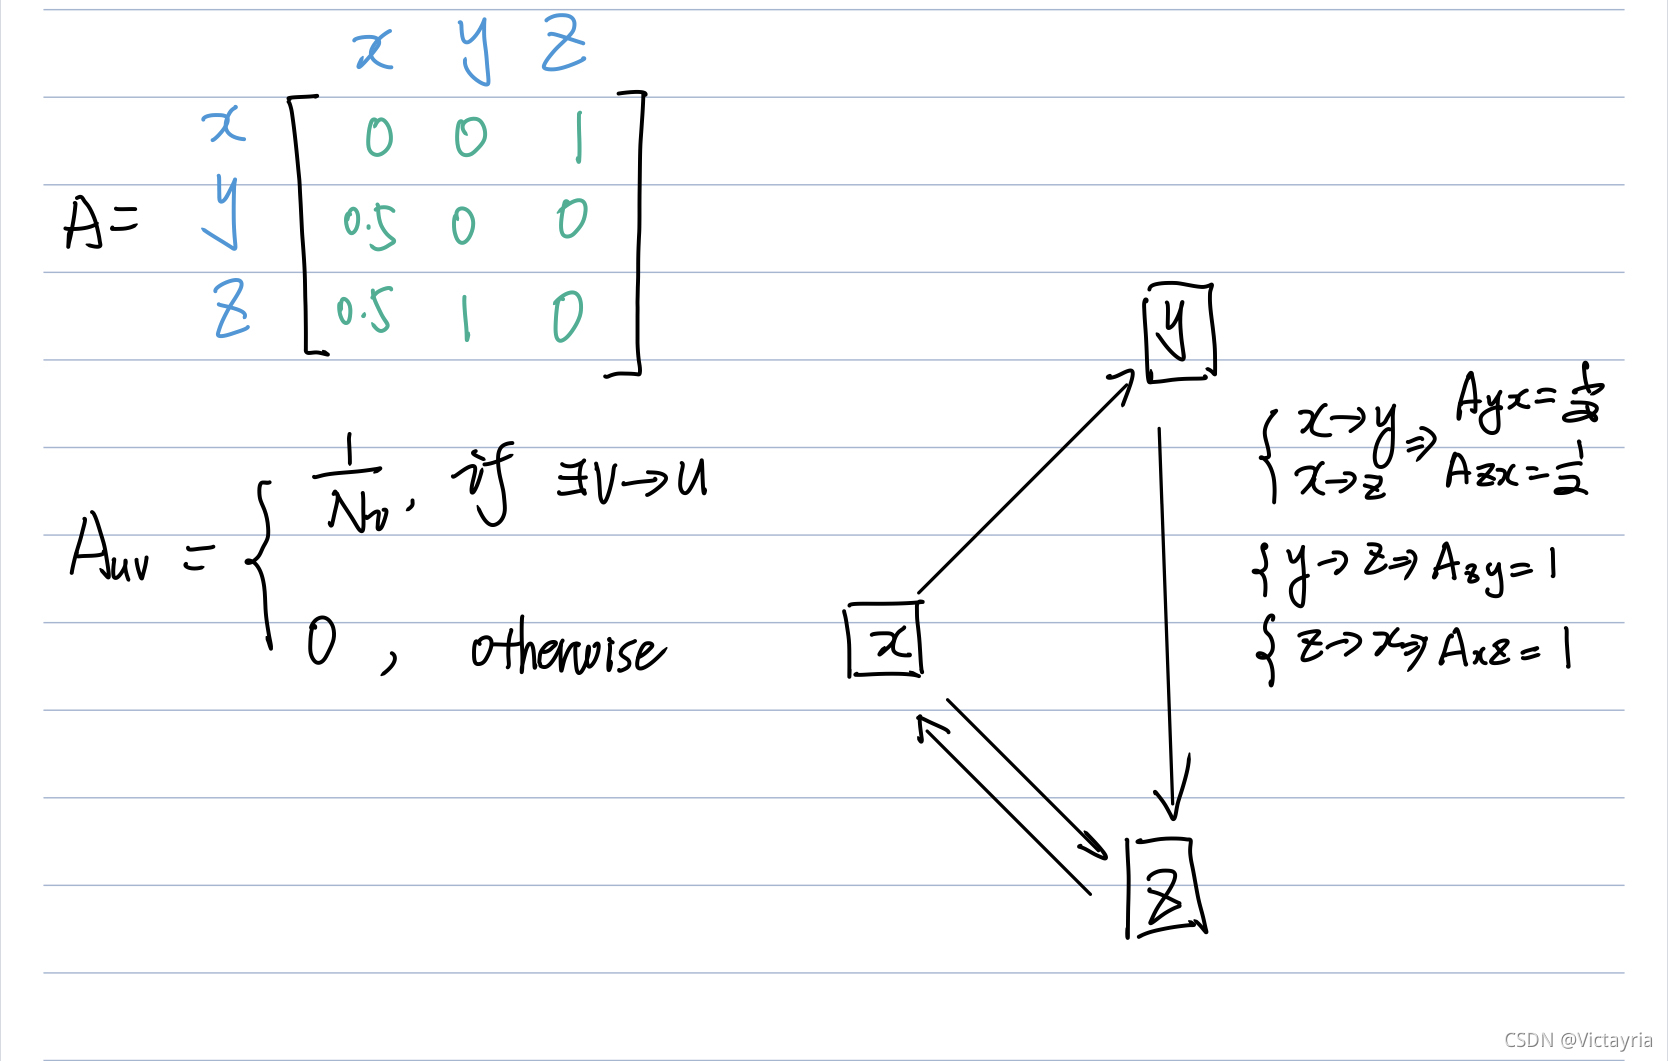 x y z
x 0 0 1
A= y 0.5 0 0
z 0.5 1 0
1/Nv, if ∃v→u
Auv = {
0, otherwise
y
x
z
{ x→y ⇒ Ayx=1/2
x→z Azx=1/2
{ y→z⇒Azy=1
{ z→x⇒Axz=1
CSDN @Victayria